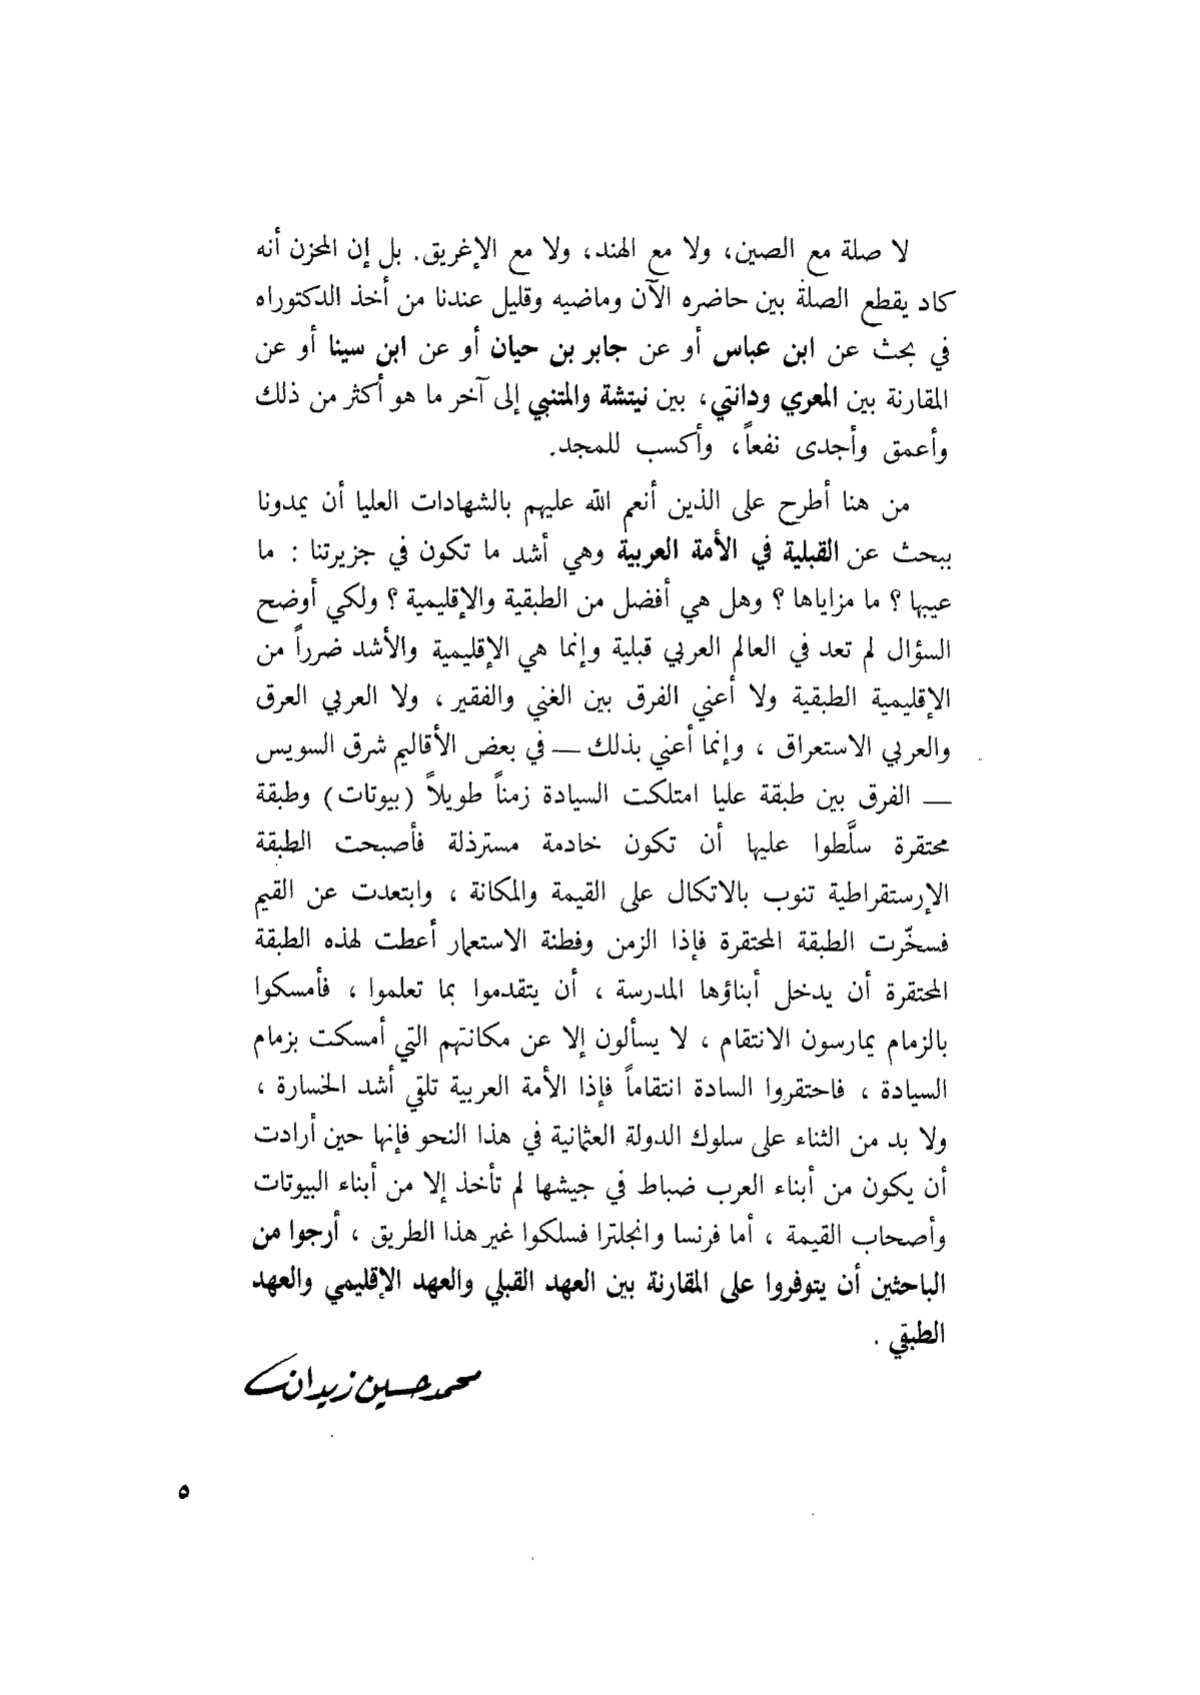 لا صلة مع الصين، ولا مع الهند، ولا مع الإغريق. بل إن المحزن أنه
كاد يقطع الصلة بين حاضره الآن وماضيه وقليل عندنا من أخذ الدكتوراه
في بحث عن ابن عباس أو عن جابر بن حيان أو عن ابن سينا أو عن
المقارنة بين المعري ودانتي، بين نيتشة والمتنبي إلى آخر ما هو أكثر من ذلك
وأعمق وأجدى نفعاً، وأكسب للمجد.
من هنا أطرح على الذين أنعم الله عليهم بالشهادات العليا أن يمدونا
ببحث عن القبلية في الأمة العربية وهي أشد ما تكون في جزيرتنا : ما
عيبها ؟ ما مزاياها ؟ وهل هي أفضل من الطبقية والإقليمية ؟ ولكي أوضح
السؤال لم تعد في العالم العربي قبلية وإنما هي الإقليمية والأشد ضرراً من
الإقليمية الطبقية ولا أعني الفرق بين الغني والفقير ، ولا العربي العرق
والعربي الاستعراق ، وإنما أعني بذلك — في بعض الأقاليم شرق السويس
— الفرق بين طبقة عليا امتلكت السيادة زمناً طويلاً (بيوتات) وطبقة
محتقرة سلَّطوا عليها أن تكون خادمة مسترذلة فأصبحت الطبقة
الإرستقراطية تنوب بالاتكال على القيمة والمكانة ، وابتعدت عن القيم
فسخّرت الطبقة المحتقرة فإذا الزمن وفطنة الاستعمار أعطت لهذه الطبقة
المحتقرة أن يدخل أبناؤها المدرسة ، أن يتقدموا بما تعلموا ، فأمسكوا
بالزمام يمارسون الانتقام ، لا يسألون إلا عن مكانتهم التي أمسكت بزمام
السيادة ، فاحتقروا السادة انتقاماً فإذا الأمة العربية تلقي أشد الخسارة ،
ولا بد من الثناء على سلوك الدولة العثمانية في هذا النحو فإنها حين أرادت
أن يكون من أبناء العرب ضباط في جيشها لم تأخذ إلا من أبناء البيوتات
وأصحاب القيمة ، أما فرنسا وانجلترا فسلكوا غير هذا الطريق ، أرجوا من
الباحثين أن يتوفروا على المقارنة بين العهد القبلي والعهد الإقليمي والعهد
الطبقي .
محمد حسين زيدان
٥